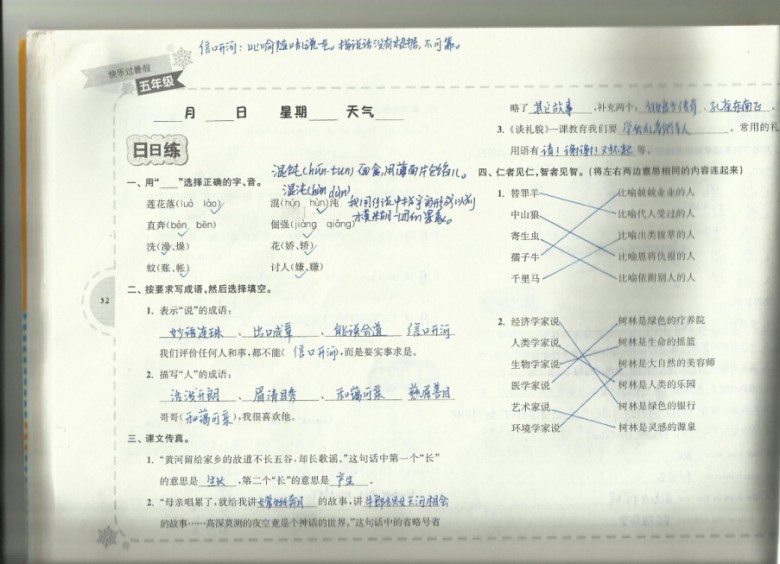 信口开河：比喻随口乱说一气。指说话没有根据,不可靠。
快乐过暑假
五年级
月 日 星期 天气
日日练
混饨(hún tun) 面食,用薄面片包馅儿。
混沌(hùn dùn)
一、用“ ”选择正确的字、音。
莲花落(luò lào) 混(hùn hún)沌
直奔(bèn bēn) 倔强(jiàng qiáng)
洗(澡、燥) 花(娇、轿)
蚊(账、帐) 讨人(嫌、赚)
二、按要求写成语,然后选择填空。
1. 表示“说”的成语:
妙语连珠、出口成章、能说会道 信口开河
我们评价任何人和事,都不能(信口开河),而是要实事求是。
2. 描写“人”的成语:
活泼开朗、眉清目秀、和蔼可亲 慈眉善目
哥哥(和蔼可亲),我很喜欢他。
三、课文传真。
1. “黄河留给家乡的故道不长五谷,却长歌谣。”这句话中第一个“长”
的意思是 生长 ,第二个“长”的意思是 产生 。
2. “母亲唱累了,就给我讲嫦娥奔月的故事,讲牛郎织女天河相会
的故事……高深莫测的夜空竟是个神话的世界。”这句话中的省略号省
52
略了 其它故事 ,补充两个: 、孔雀东南飞 。
3.《谈礼貌》一课教育我们要 。常用的礼
用语有 请!谢谢!对不起 等。
四、仁者见仁,智者见智。(将左右两边意思相同的内容连起来)
1. 替罪羊 比喻兢兢业业的人
中山狼 比喻代人受过的人
寄生虫 比喻出类拔萃的人
孺子牛 比喻恩将仇报的人
千里马 比喻依附别人的人
2. 经济学家说 树林是绿色的疗养院
人类学家说 树林是生命的摇篮
生物学家说 树林是大自然的美容师
医学家说 树林是人类的乐园
艺术家说 树林是绿色的银行
环境学家说 树林是灵感的源泉